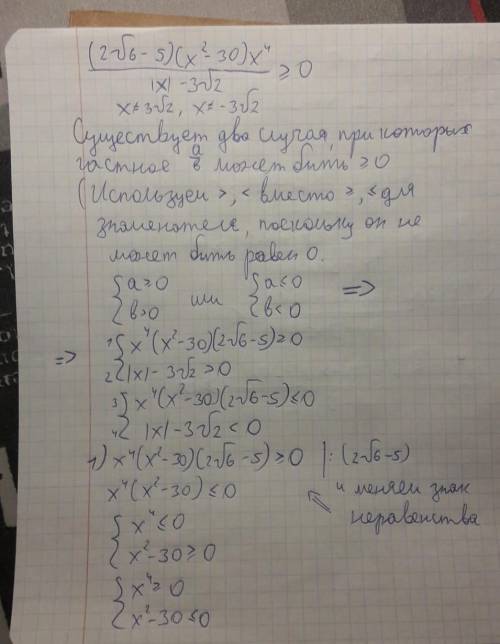 (2√6-5)(x²-30)x⁴
|x|-3√2 ≥ 0
x≠3√2, x≠-3√2
Существует два случая, при которых
частное a/b может быть ≥0
(Используем >, < вместо ≥, ≤ для
знаменателя, поскольку он не
может быть равен 0.
{a≥0 или {a≤0 =>
{b>0 {b<0
=> 1 {x⁴(x²-30)(2√6-5)≥0
2 {|x|-3√2>0
3 {x⁴(x²-30)(2√6-5)≤0
4 {|x|-3√2<0
1) x⁴(x²-30)(2√6-5)≥0 |:(2√6-5)
x⁴(x²-30)≤0 и меняем знак
неравенства
{x⁴≤0
{x²-30≥0
{x⁴≥0
{x²-30≤0